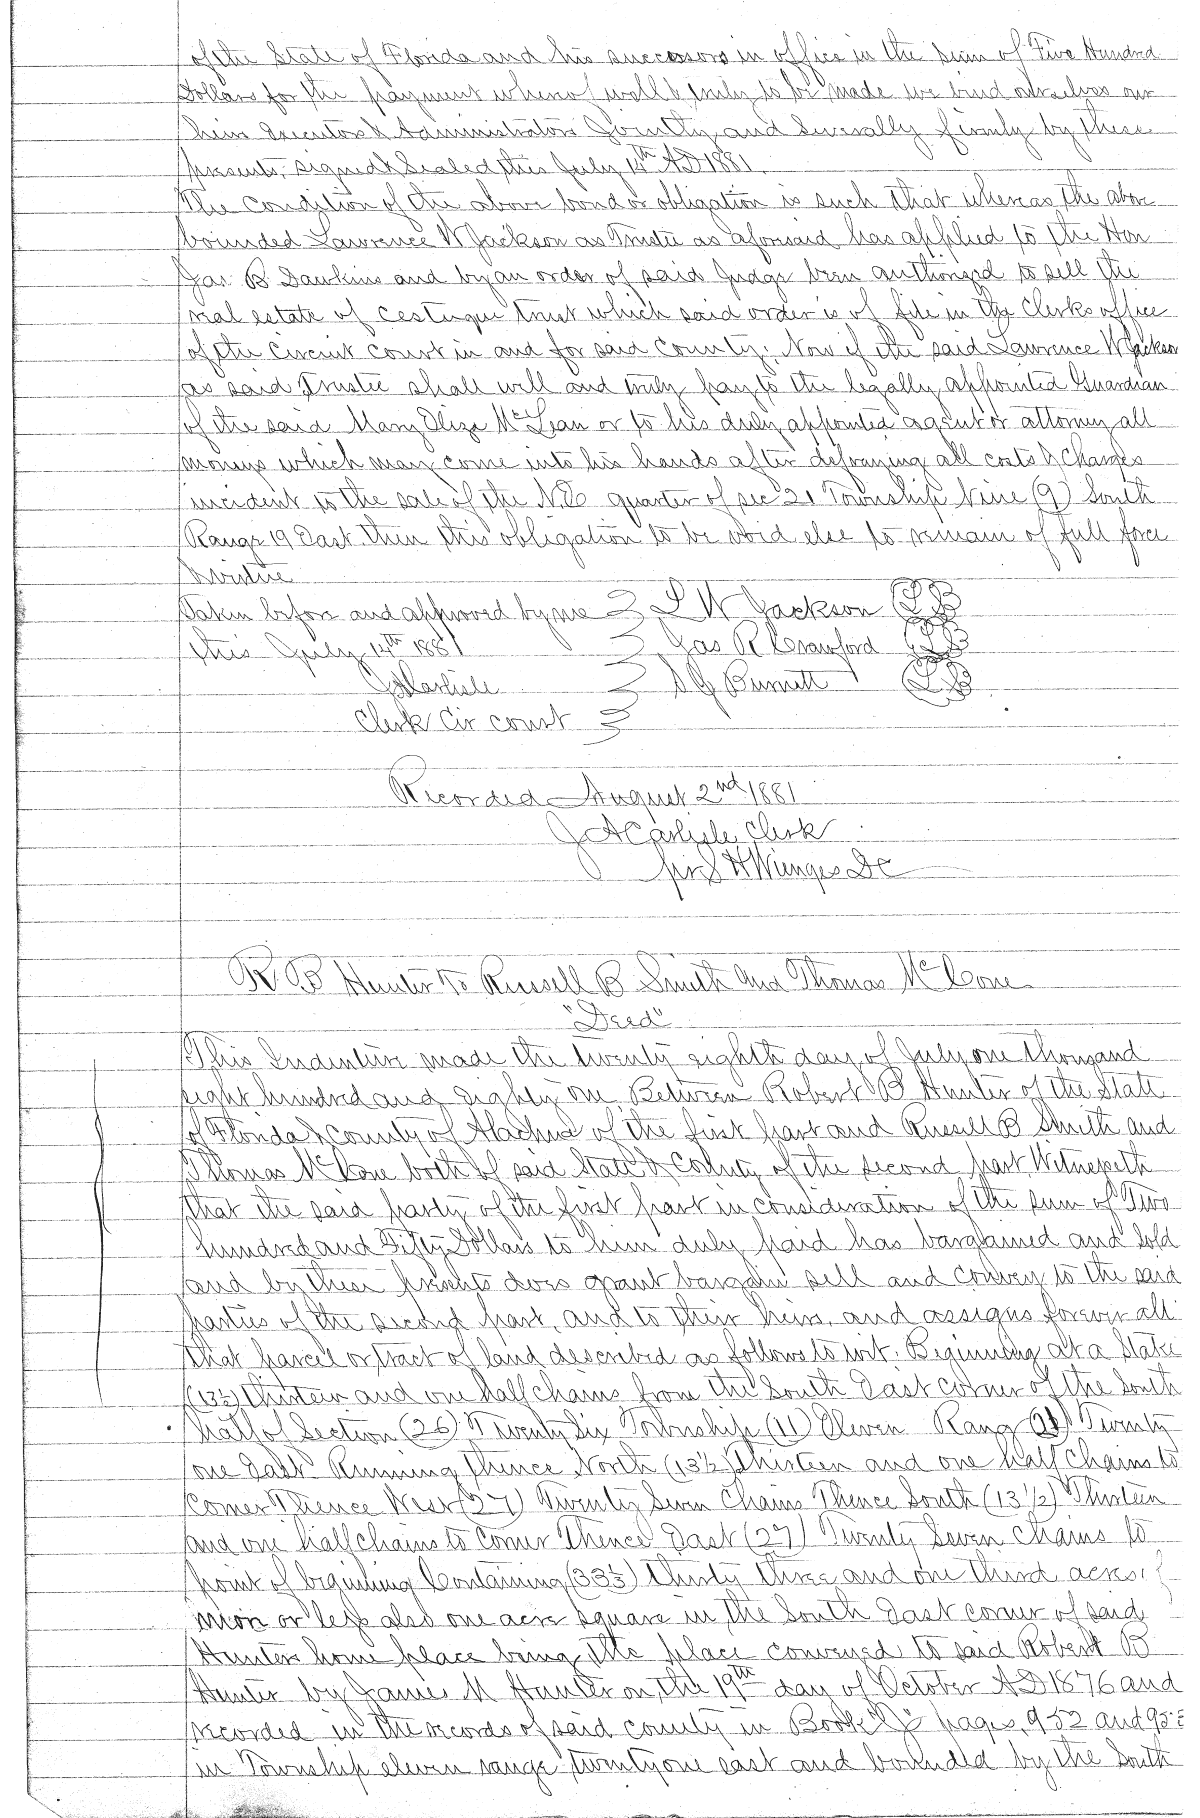 of the State of Florida and his successors in office in the sum of Five Hundred
Dollars for the payment whereof well & truly to be made we bind ourselves our
heirs Executors & Administrators Jointly and Severally firmly by these
presents, signed & Sealed this July 14th AD 1881.
The Condition of the above bond or obligation is such that whereas the above
bounded Lawrence W Jackson as Trustee as aforesaid has applied to the Hon
Jas B Dawkins and by an order of said Judge been authorized to sell the
real estate of Cestuque trust which said order is of file in the Clerks office
of the Circuit court in and for said County; Now if the said Lawrence W Jackson
as said Trustee shall well and truly pay to the legally appointed Guardian
of the said Mary Eliza McLean or to his duly appointed agent or attorney all
moneys which may come into his hands after defraying all costs & Charges
incident to the sale of the N.E quarter of sec 21 Township Nine (9) South
Range 19 East then this obligation to be void else to remain of full force
& virtue
Taken before and approved by me L W Jackson (LS)
this July 14th 1881 Jas R Crawford (LS)
JA Carlisle S J Burnett (LS)
Clerk Cir court
Recorded August 2nd 1881
J A Carlisle Clerk
per S H Wienges DC
R B Hunter To Russell B Smith and Thomas McCone
"Deed"
This Indenture made the twenty eighth day of July one thousand
eight hundred and Eighty one Between Robert B Hunter of the State
of Florida & County of Alachua of the first part and Russell B Smith and
Thomas McCone both of said State & County of the second part Witnesseth
that the said party of the first part in consideration of the sum of Two
hundred and Fifty Dollars to him duly paid has bargained and sold
and by these presents does grant bargain sell and convey to the said
parties of the second part, and to their heirs, and assigns forever all
that parcel or tract of land described as follows to wit: Beginning at a Stake
(13½) thirteen and one half chains from the South East corner of the South
half of Section (26) Twenty Six Township (11) Eleven Rang (21) Twenty
one East Running thence North (13½) thirteen and one half Chains to
Corner Thence West (27) Twenty Seven Chains Thence South (13 1/2) Thirteen
and one half chains to Corner Thence East (27) Twenty Seven chains to
point of beginning Containing (33⅓) thirty three and one third acres
more or less also one acre square in the South East corner of said
Hunters home place being the place conveyed to said Robert B
Hunter by James M Hunter on the 19th day of October AD 1876 and
recorded in the records of said county in Book "J" pages 952 and 953
in Township eleven range twenty one east and bounded by the South